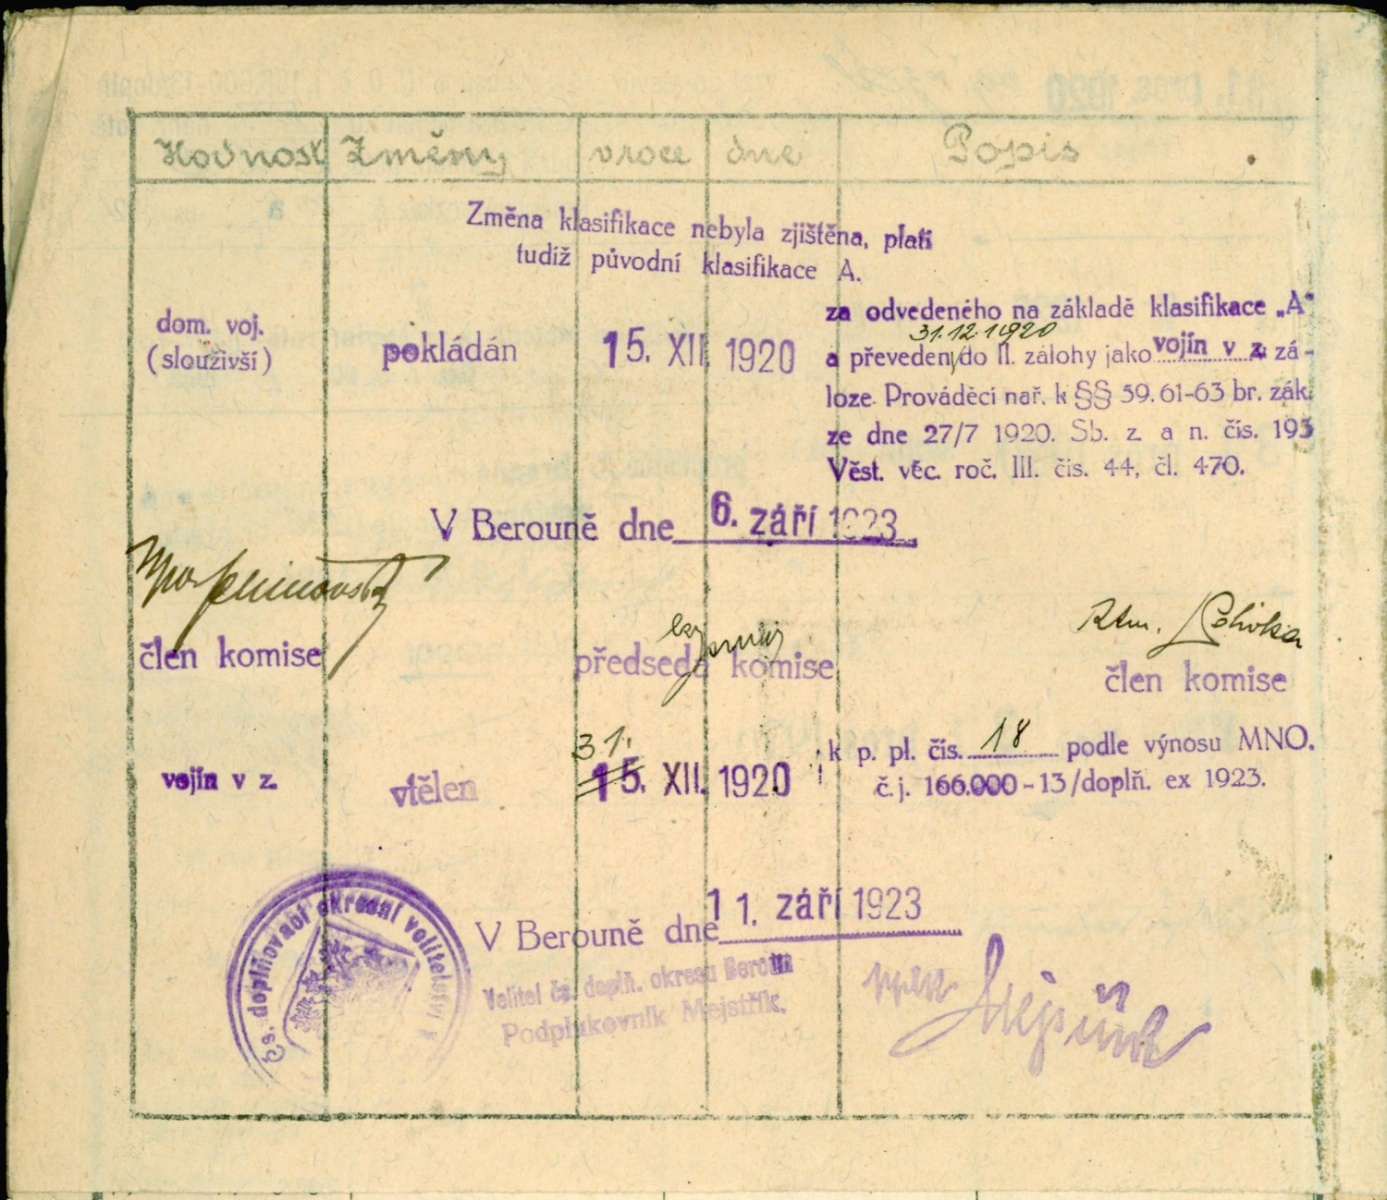 Hodnost Změny v roce dne Popis
Změna klasifikace nebyla zjištěna, platí
tudíž původní klasifikace A.
dom. voj.
(slouživší)
pokládán
15. XII. 1920
za odvedeného na základě klasifikace „A"
31.12.1920
a převeden do II. zálohy jako vojín v z. zá-
loze. Prováděcí nař. k §§ 59. 61-63 br. zák.
ze dne 27/7 1920. Sb. z. a n. čís. 193
Věst. věc. roč. III. čís. 44, čl. 470.
V Berouně dne 6. září 1923
člen komise
předseda komise
Rtm.
člen komise
vojín v z.
vtělen
31.
15. XII. 1920
k p. pl. čís. 18 podle výnosu MNO.
č. j. 166.000-13/doplň. ex 1923.
V Berouně dne 11. září 1923
Čs. doplňovací okresní velitelství
Velitel čs. doplň. okresu Beroun
Podplukovník Mejstřík.